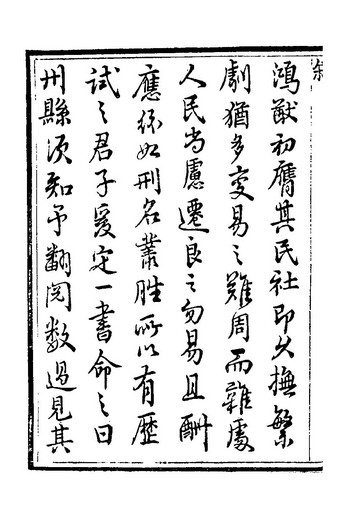 鴻猷初膺其民社即欠撫繁
劇猶多变易之難周而雜處
人民当慮遷良之勿易且酬
應紛如刑名叢脞所以有歴
試之君子爰定一書命之曰
州縣须知予翻阅数過見其